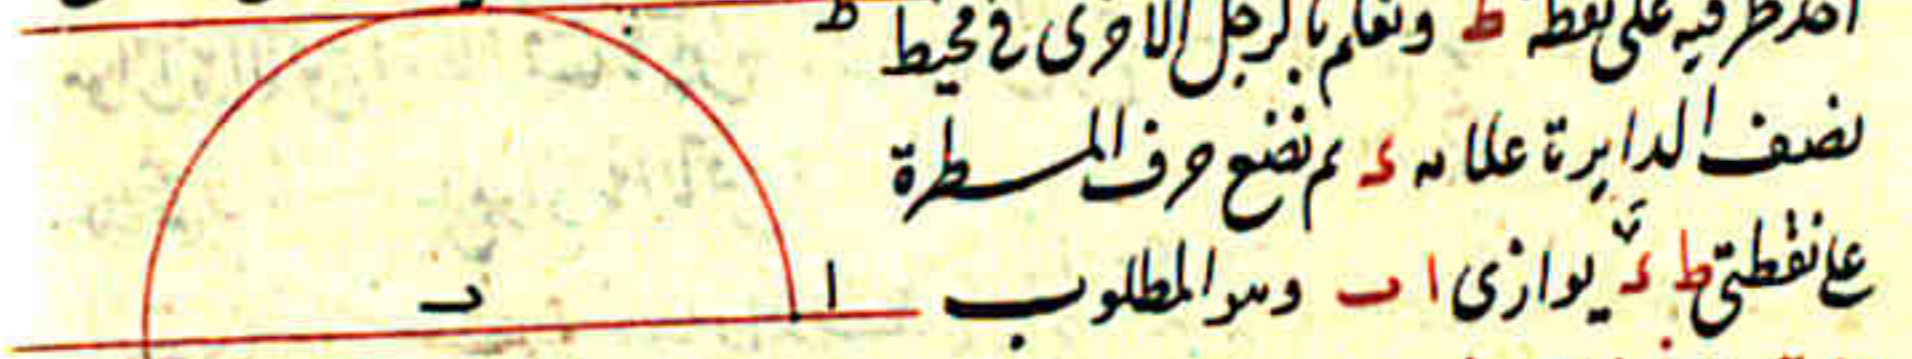 احد طرفيه على نقطة ط ونعلم بالرجل الاخرى في محيط
نصف الدايرة علامه ء ثم نضع حرف المسطرة
على نقطتي ط ء يوازى ا ب وهو المطلوب
ط
ا
د